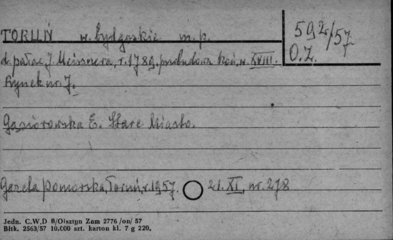 TORUŃ w. bydgoskie m. p. 592/57
d. pałac J. Meissnera, r. 1789, przebudowa koń. w. XVIII. O.Z.
Rynek nr. 7.
Gąsiorowska E. Stare Miasto.
Gazeta Pomorska, Toruń, r. 1957. 21. XI. nr. 278
Jedn. C.W.D R/Olsztyn Zam 2776 /on/ 57
Bltk. 2563/57 10.000 szt. karton kl. 7 g 220,